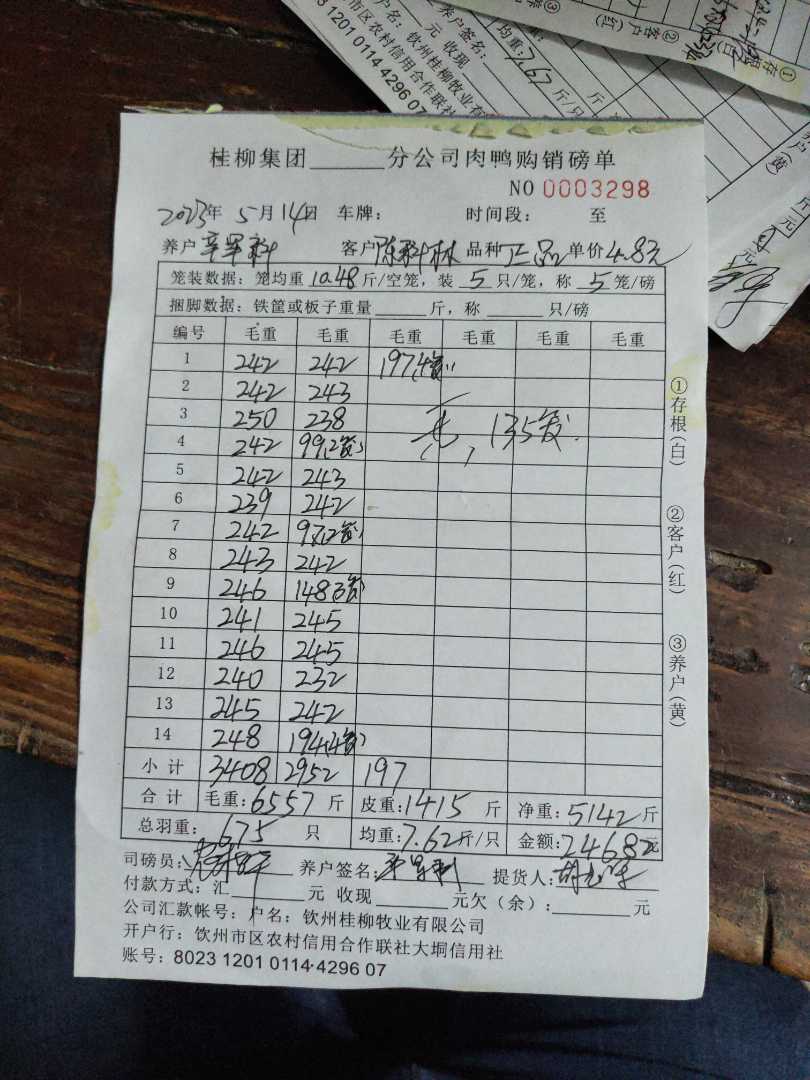 元 养户签名:
户名: 钦州桂柳牧业有
收现
均重:7.67斤/
州市区农村信用合作联社
1201 0114 4296 07
②客户(红)
①存根(白)
桂柳集团______分公司肉鸭购销磅单
NO 0003298
2023年 5月14日 车牌: 时间段: 至
养户 客户 陈科林 品种 正品 单价 4.8元
笼装数据: 笼均重 10.48 斤/空笼, 装 5 只/笼, 称 5 笼/磅
捆脚数据: 铁筐或板子重量 ______ 斤, 称 ______ 只/磅
编号 毛重 毛重 毛重 毛重 毛重 毛重
1 242 242 197(4笼)
2 242 243
3 250 238 135笼
4 242 99(2笼)
5 242 243
6 239 242
7 242 97(2笼)
8 243 242
9 246 148(3笼)
10 241 245
11 246 245
12 240 232
13 245 242
14 248 194(4笼)
小计 3408 2952 197
合计 毛重: 6557 斤 皮重: 1415 斤 净重: 5142 斤
总羽重: 675 只 均重: 7.62 斤/只 金额: 24682 元
司磅员: 养户签名: 提货人:
付款方式: 汇______元 收现______元欠(余): ______元
公司汇款帐号: 户名: 钦州桂柳牧业有限公司
开户行: 钦州市区农村信用合作联社大垌信用社
账号: 8023 1201 0114·4296 07
①存根(白)
②客户(红)
③养户(黄)